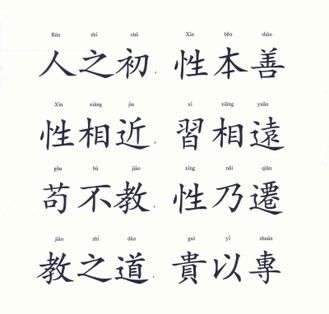 Rén zhī chū Xìn běn shàn
人之初，性本善
Xìn xiāng jìn xí xiāng yuǎn
性相近 習相遠
gǒu bù jiào xìng nǎi qiān
苟不教，性乃遷
jiāo zhī dào guì yǐ zhuān
教之道，貴以專